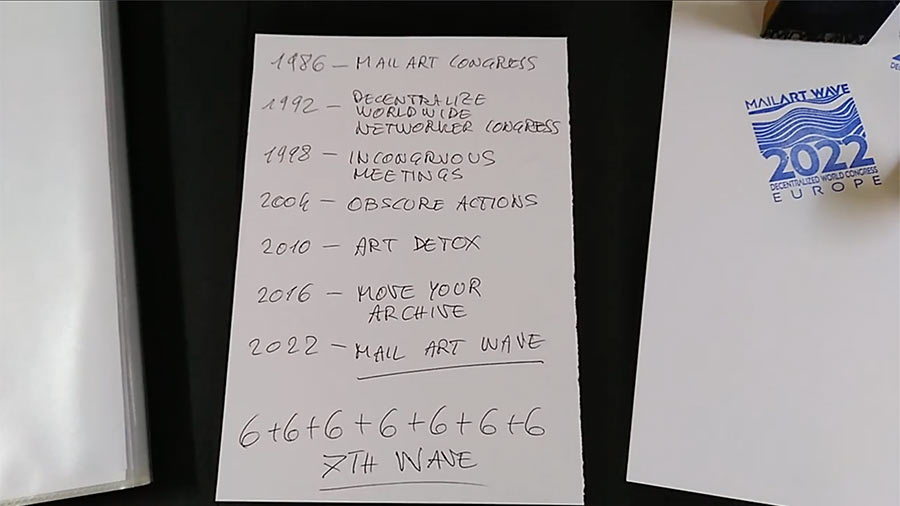 1986 – MAIL ART CONGRESS
1992 – DECENTRALIZE
WORLDWIDE
NETWORKER CONGRESS
1998 – INCONGRUOUS
MEETINGS
2004 – OBSCURE ACTIONS
2010 – ART DETOX
2016 – MOVE YOUR
ARCHIVE
2022 – MAIL ART WAVE
6+6+6+6+6+6+6
7TH WAVE
MAILART WAVE
2022
DECENTRALIZED WORLD CONGRESS
EUROPE